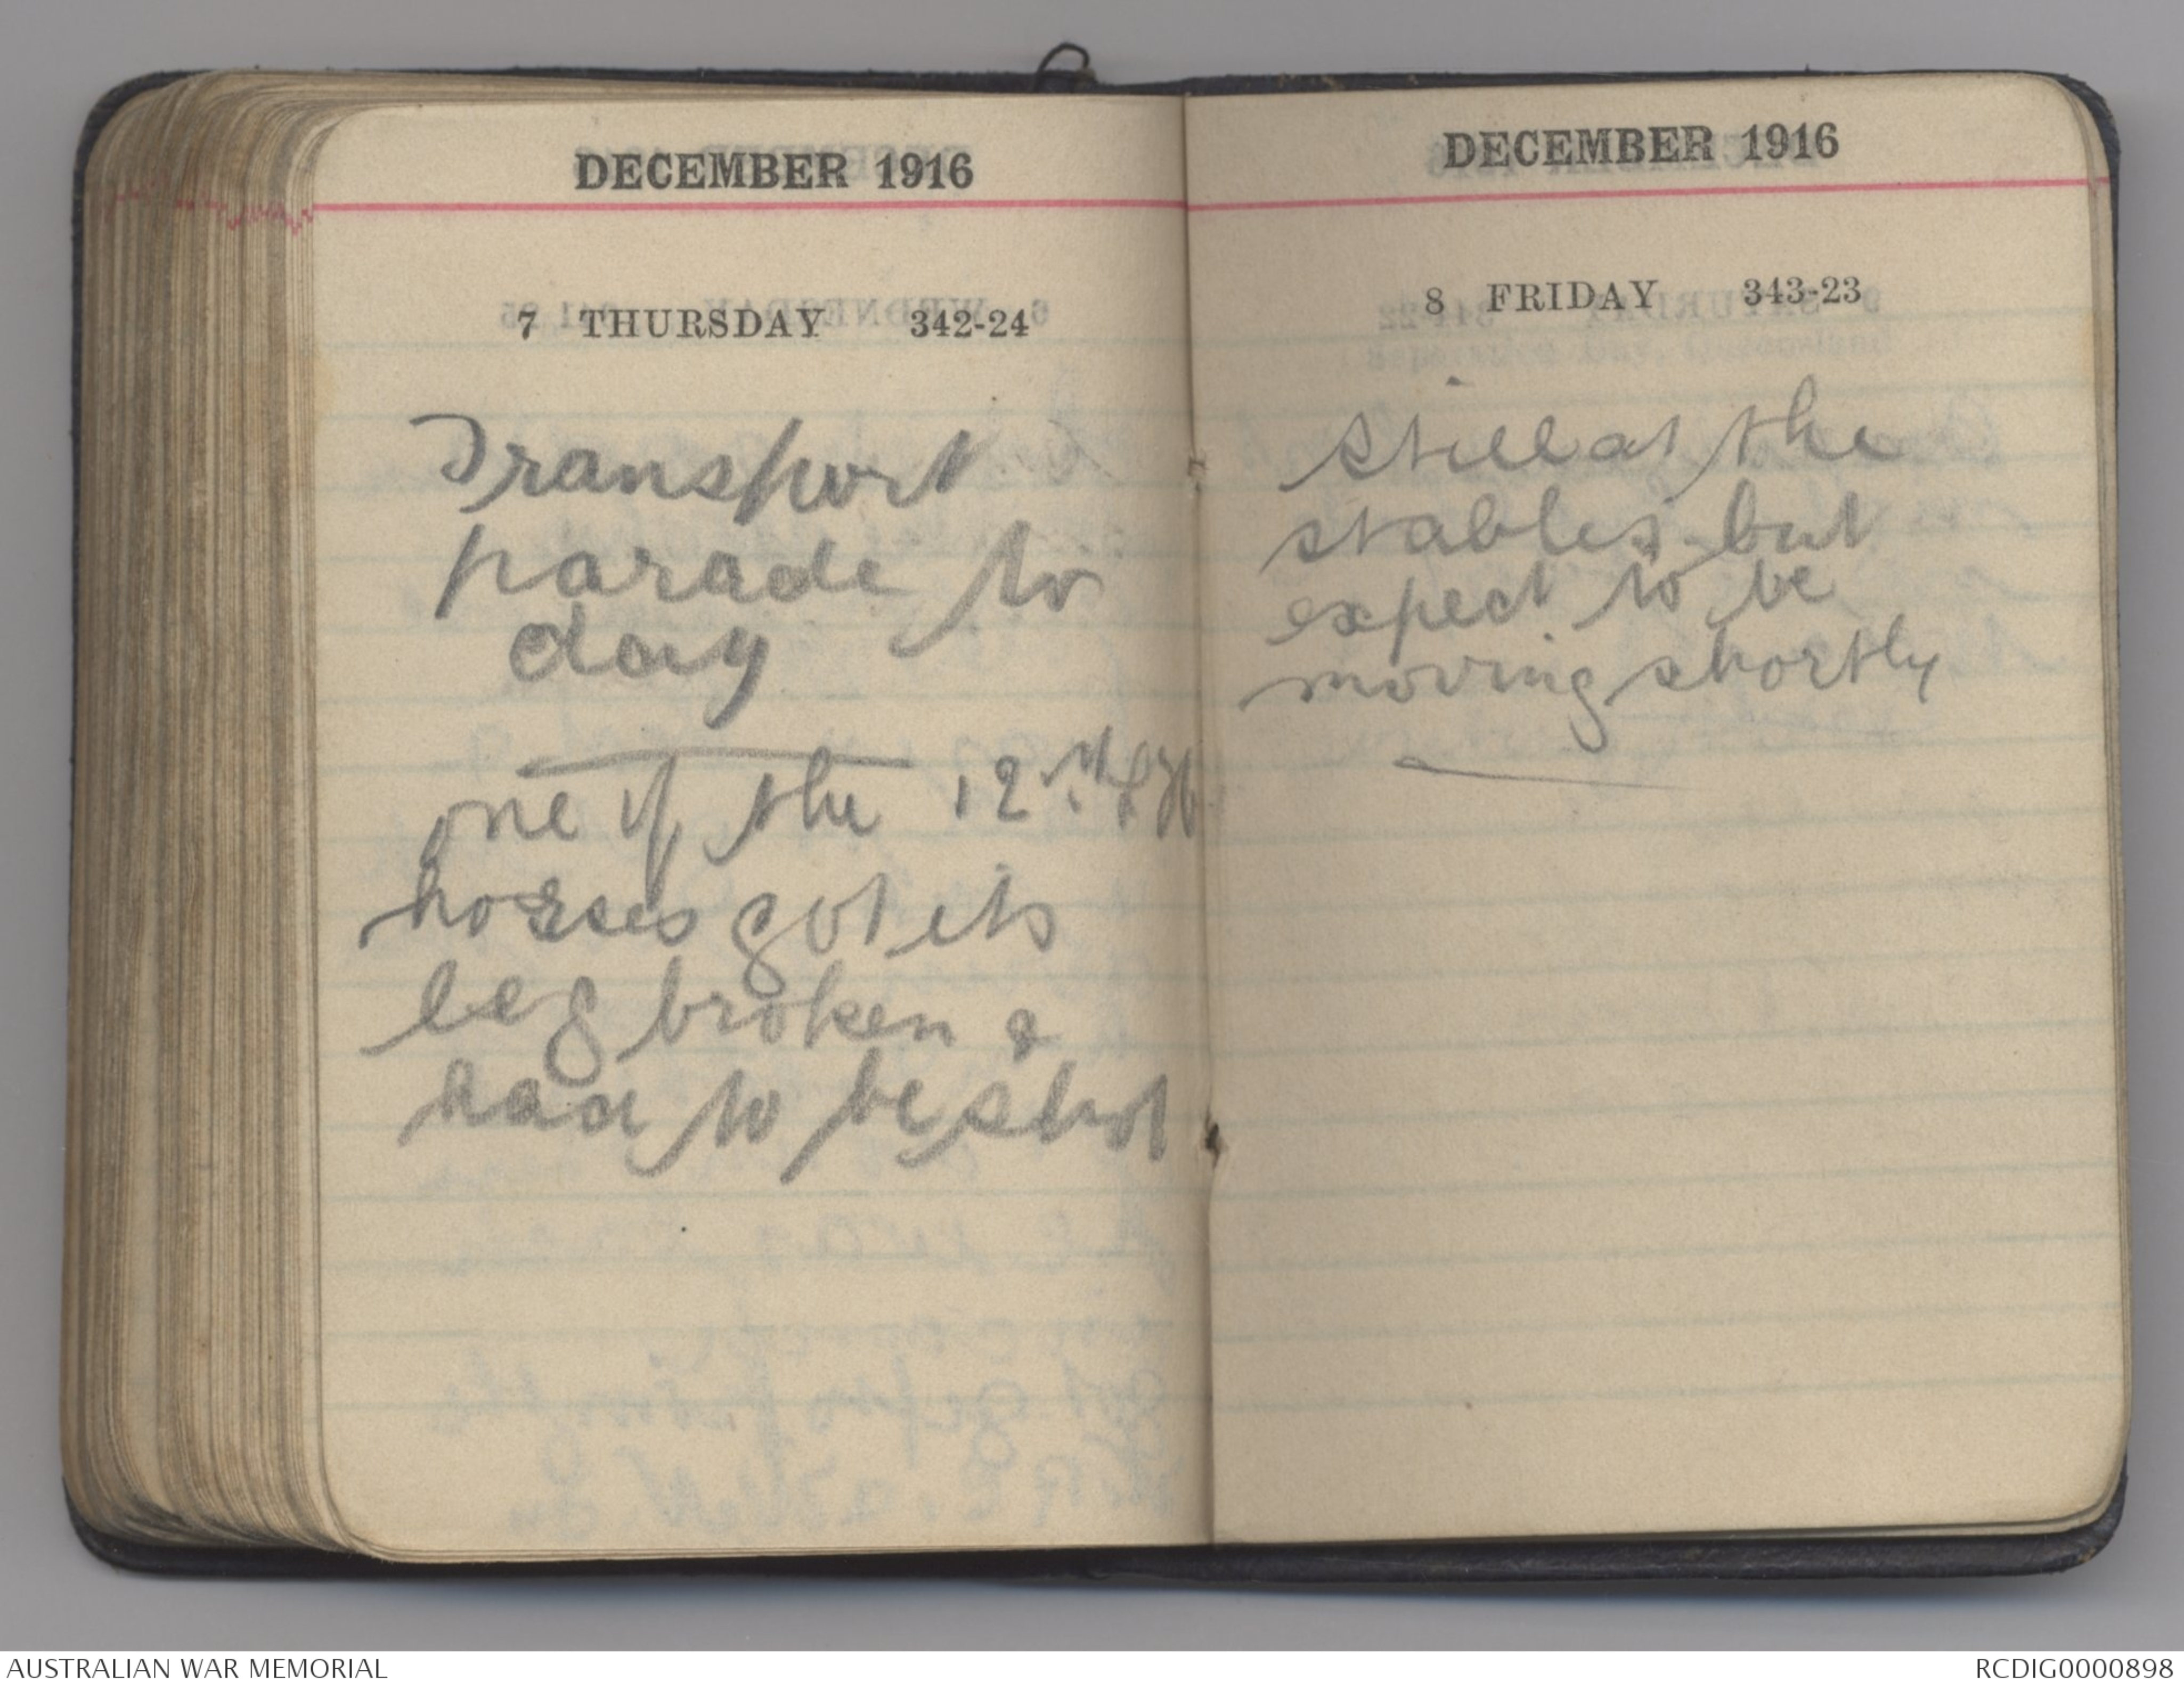 DECEMBER 1916
7 THURSDAY 342-24
Transport
parade to
day
one of the 12th LH
horses got its
leg broken &
had to be shot
DECEMBER 1916
8 FRIDAY 343-23
Still at the
stables but
expect to be
moving shortly
AUSTRALIAN WAR MEMORIAL
RCDIG0000898